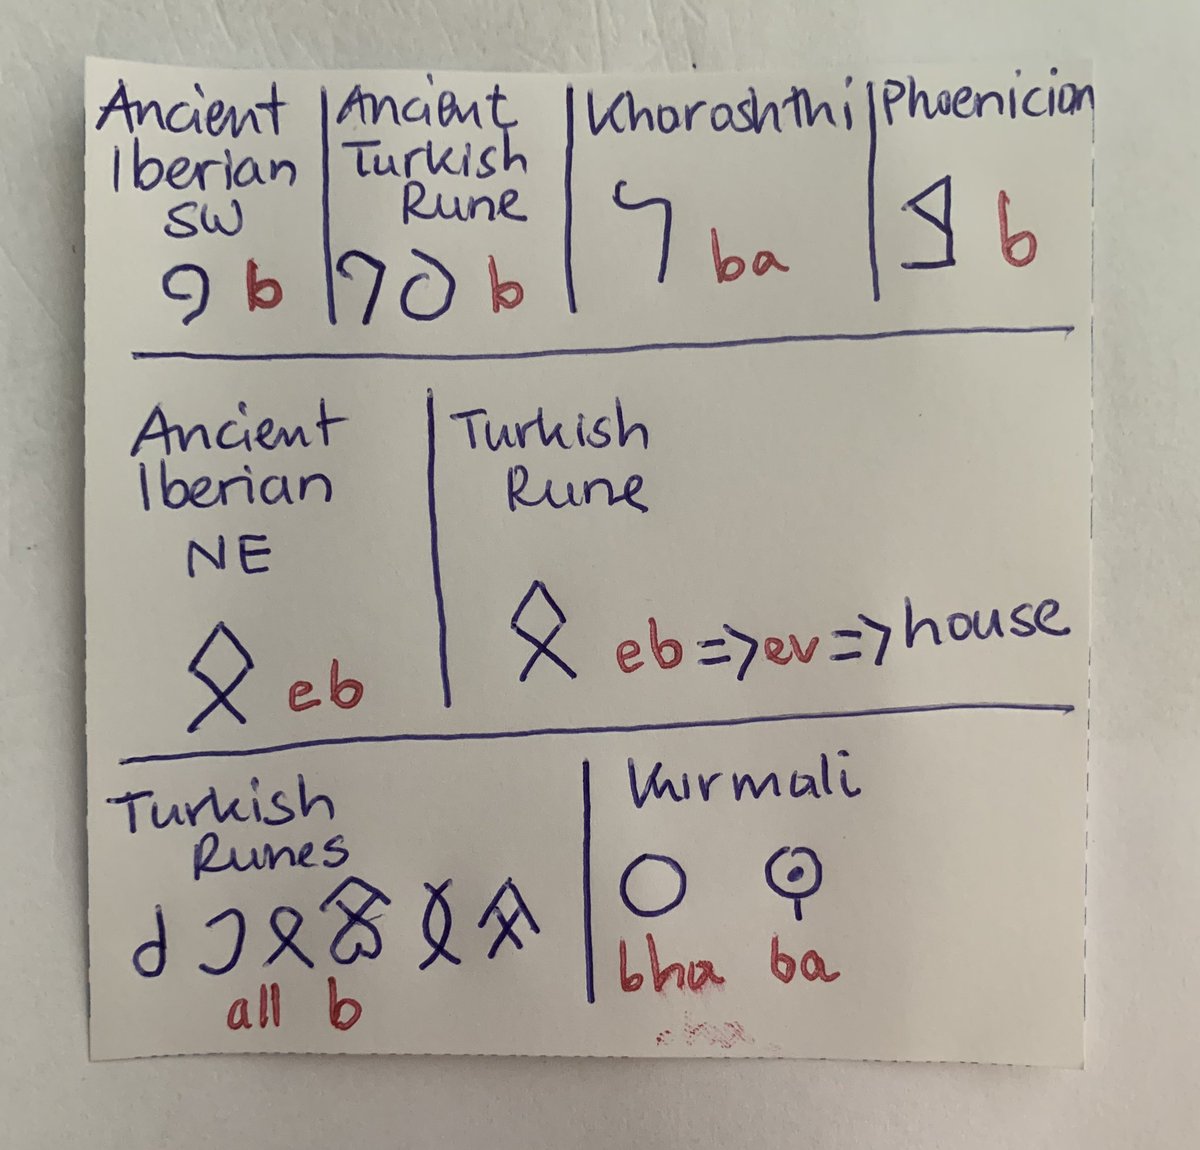 Ancient Iberian SW
b
Ancient Turkish Rune
b
Kharashthi
ba
Phoenician
b
Ancient Iberian NE
eb
Turkish Rune
eb => ev => house
Turkish Runes
all b
Kurmali
bha ba